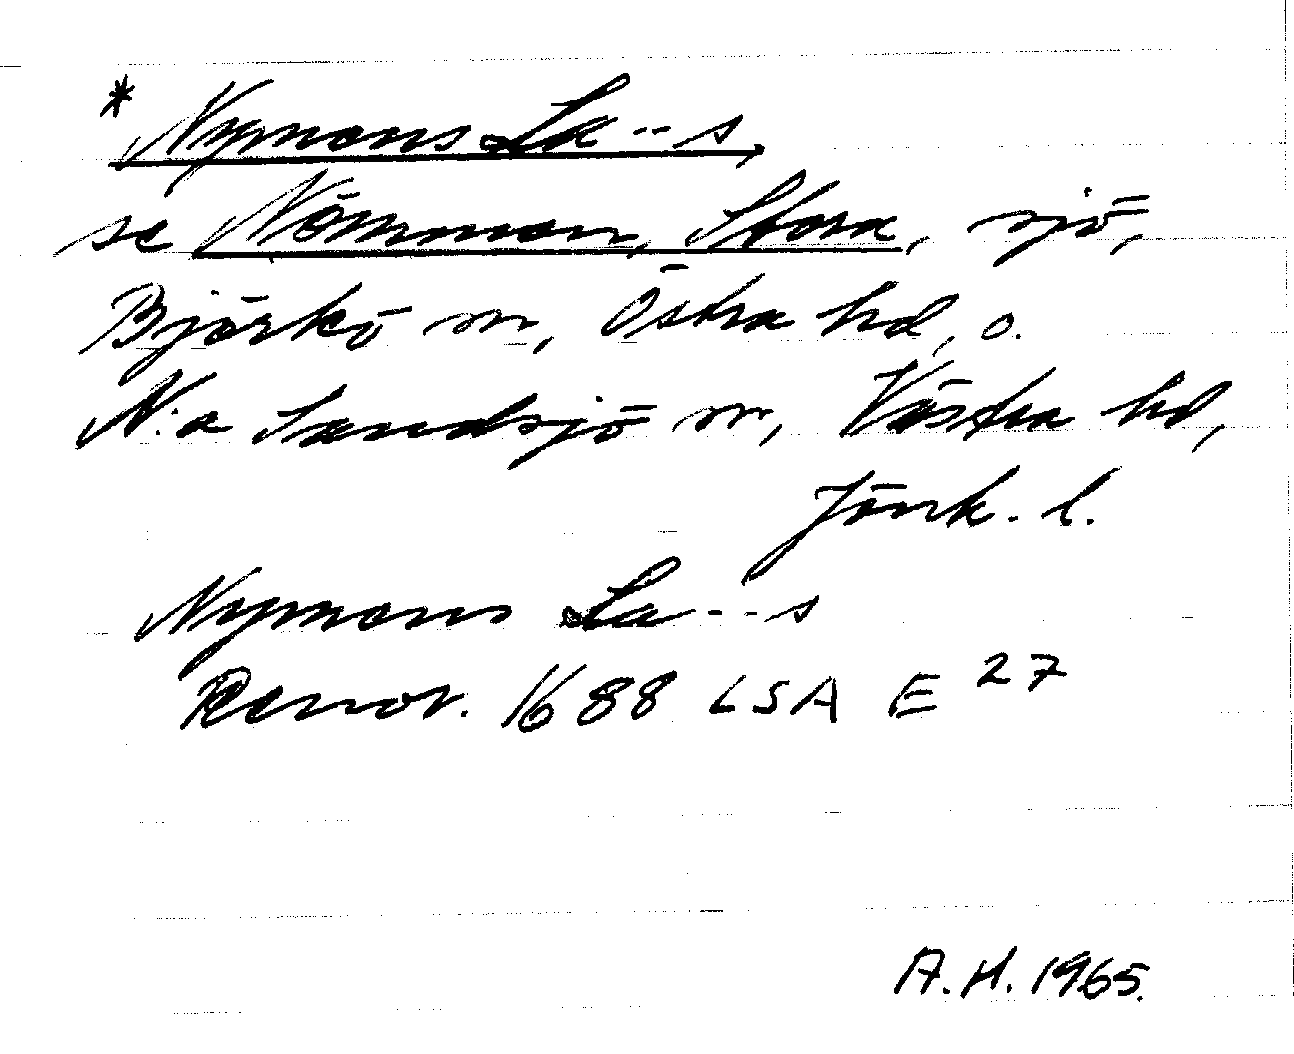 * Nymans La--s,
se Nömmen, Stora, sjö,
Björkö sn, Östra hd, o.
N:a Sandsjö sn, Västra hd,
Jönk. l.
Nymans La---s
Renov. 1688 LSA E 27
A.H. 1965.